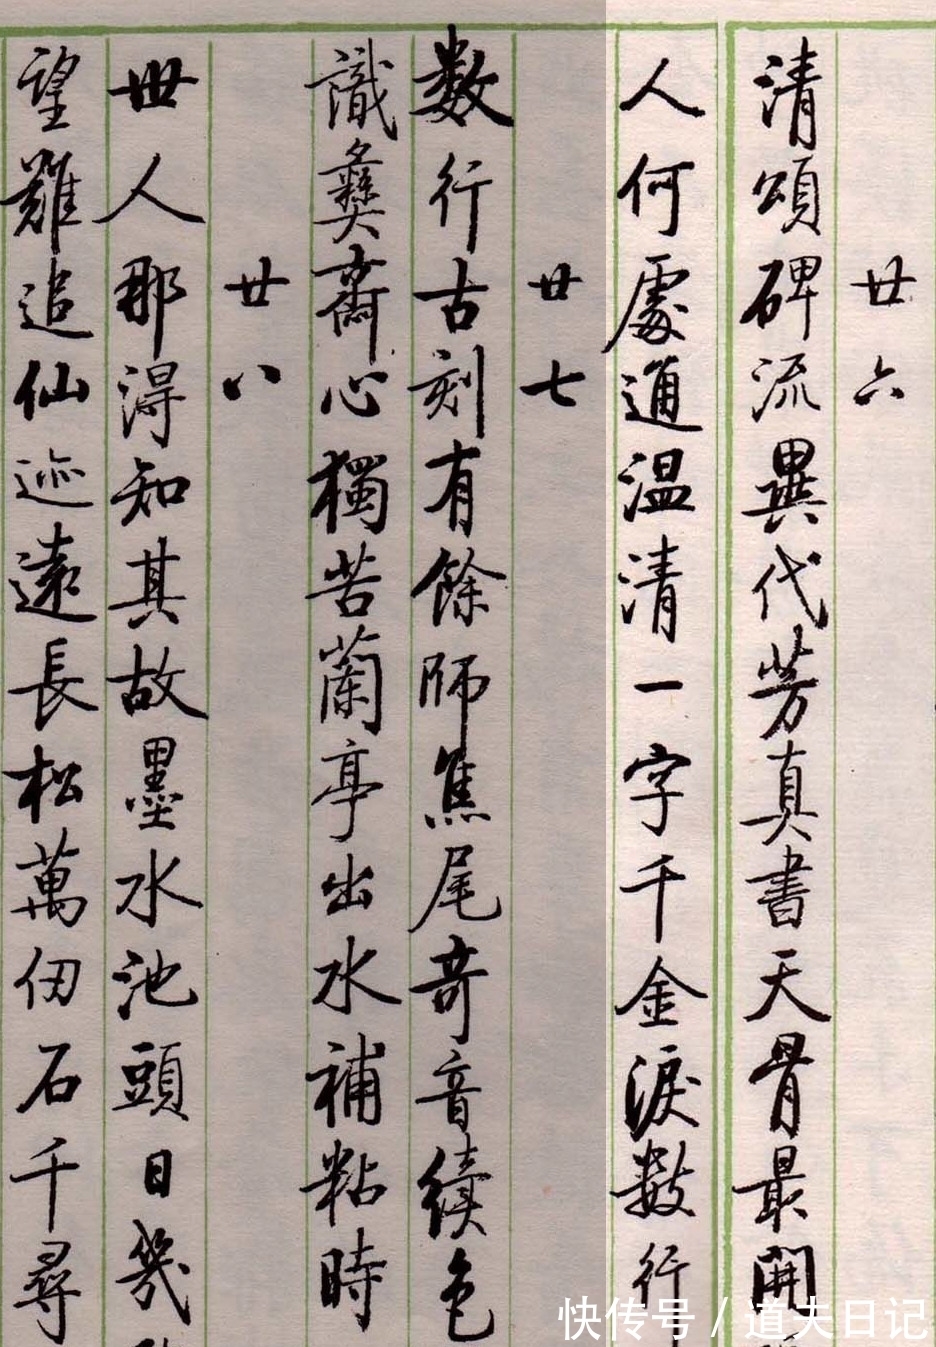 廿六
清頌碑流異代芳真書天骨最開
人何處通温清一字千金淚數行
廿七
数行古刻有餘師焦尾奇音續色
識彝齋心獨苦蘭亭出水補粘時
廿八
世人那得知其故墨水池頭日幾
望難追仙迹遠長松萬仞石千尋
快传号 / 道夫日记